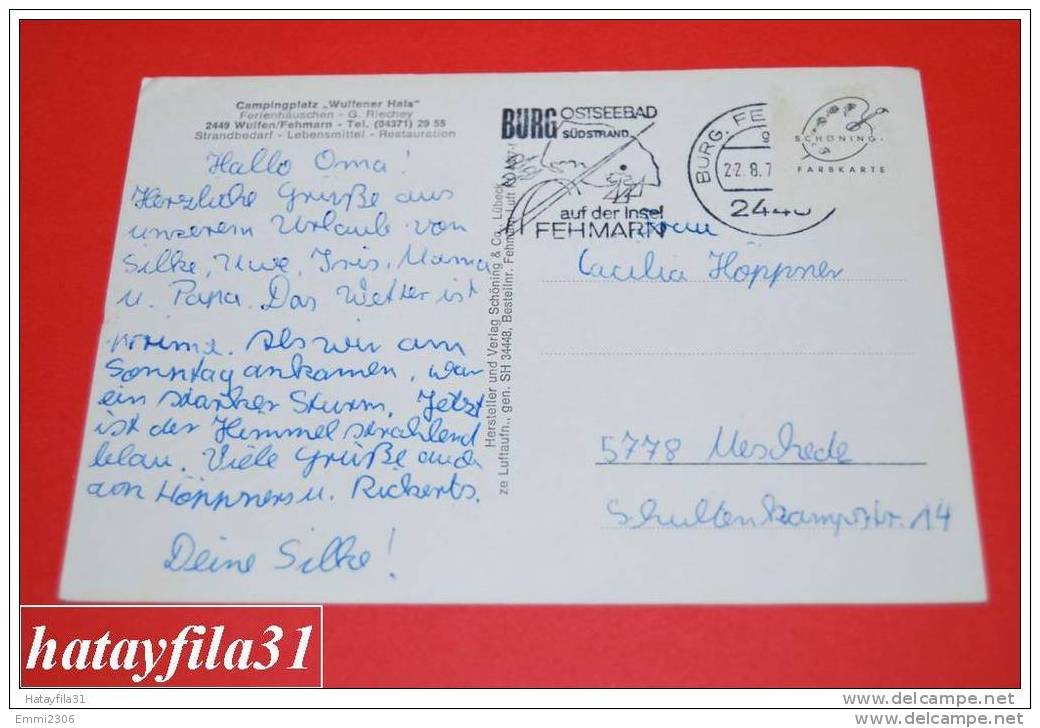 Campingplatz „Wulfener Hals"
Ferienhäuschen - G. Riechey
2449 Wulfen/Fehmarn - Tel. (04371) 29 55
Strandbedarf - Lebensmittel - Restauration
Hallo Oma!
Herzliche Grüße aus
unserem Urlaub von
Silke, Uwe, Iris, Mama
u. Papa. Das Wetter ist
prima. Als wir am
Sonntag ankamen, war
ein starker Sturm. Jetzt
ist der Himmel strahlend
blau. Viele Grüße auch
von Höppners u. Rickerts.
Deine Silke!
Hersteller und Verlag Schöning & Co., Lübeck
ze Luftaufn., gen. SH 34448, Bestellnr. Fehmarn Luft
BURG OSTSEEBAD
SÜDSTRAND
auf der Insel
FEHMARN
BURG, FE
22.8.7
2440
SCHÖNING-
FARBKARTE
Frau
Cäcilia Höppner
5778 Meschede
Schultenkampstr. 14
hatayfila31
Hatayfila31
Emmi2306
www.delcampe.net